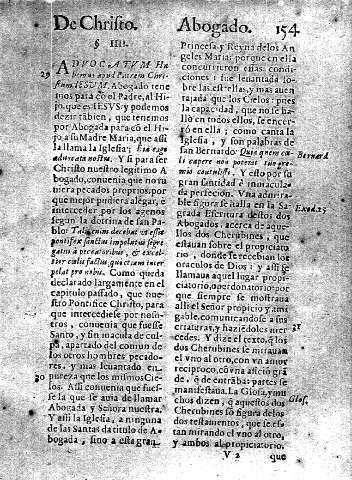 De Christo. Abogado. 154
§ IIII.
29
ADVOCATVM Ha
bemus apud Patrem Chri-
stum IESVM. Abogado tene
mos para cō el Padre, al Hi-
jo, que es IESVS: y podemos
dezir tābien, que tenemos
por Abogada para cō el Hi-
jo, a su Madre Maria, que assi
la llama la Iglesia; Eia ergo
aduocata nostra. Y si para ser
Christo nuestro legitimo A
bogado, conuenia que no tu
uiera pecados proprios, por
que mejor pudiera alegar, è
interceder por los agenos
segun la dotrina de san Pa-
blo: Talis enim decebat vt esset
pontifex sanctus impolutus segre
gatus à peccatoribus, & excel-
sior cælis factus qui etiam inter
pelat pro nobis. Como queda
declarado largamente en el
capitulo passado, que nue-
stro Pontifice Christo, para
que intercediesse por noso-
tros, conuenia que fuesse
Santo, y sin macula de cul-
pa, apartado del comun de
los otros hombres pecado-
res, y mas leuantado en
30
pureza que los mismos Cie-
los. Assi conuenia que fues-
se la que se auia de llamar
Abogada y Señora nuestra.
Y assi la Iglesia, a ninguna
de las Santas da titulo de A-
bogada, sino a esta gran
Princesa, y Reyna de los An
geles Maria: porque en ella
concurrieron estas condi-
ciones: fue leuantada so-
bre las estrellas, y mas auen
tajada que los Cielos: pues
la capacidad, que no se ha-
lló en todos ellos, se encer-
ró en ella; como canta la
Iglesia, y son palabras de
san Bernardo: Quia quem cœ-
Bernard
li capere non poterāt tuo gre-
mio contulisti. Y esto por su
gran santidad è inmacula-
da perfeciō. Vna admira-
ble figura se halla en la Sa-
Exod.25
grada Escritura destos dos
Abogados, acerca de aque-
llos dos Cherubines, que
estauan sobre el propiciato
rio, donde se recebian los
oraculos de Dios: y assi se
llamaua aquel lugar propi-
ciatorio, ò perdonatorio: por
que siempre se mostraua
alli el Señor propicio y ami
gable, comunicandose a sus
31
criaturas, y haziédoles mer
cedes. Y dize el texto, q̄ los
dos Cherubines se mirauan
el vno al otro, con vn amor
reciproco, cō vna aficiō grā
de, q̄ de entrābas partes se
manifestaua. La Glosa, y mu
Glos.
chos dizen, q̄ aquestos dos
Cherubines sō figura de los
dos testamentos, que se es-
tan mirando el vno al otro,
y ambos al propiciatorio,
V 2 que